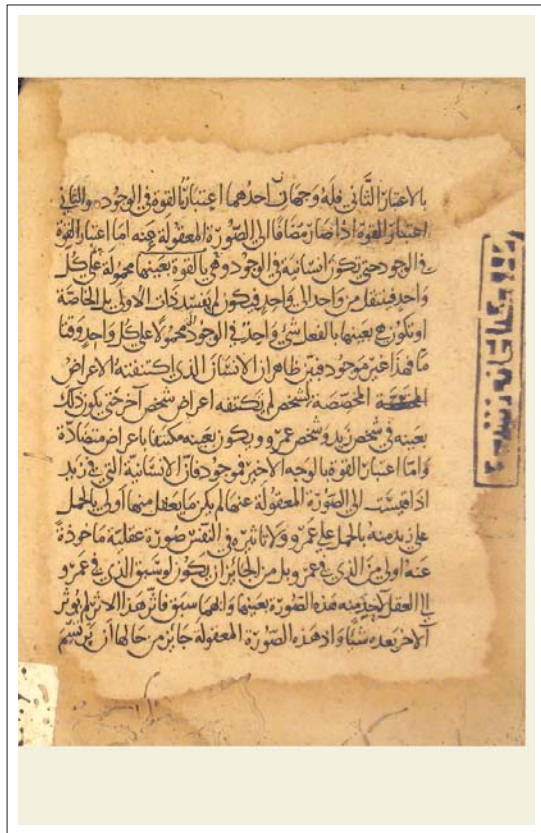 بالاعتبار الثاني فله وجهان احدهما اعتبار بالقوة في الوجود والثاني
اعتبار القوة اذا صار مضافا الى الصورة المعقولة عنه اما اعتبار القوة
في الوجود حتى تكون انسانية في الوجود وهي بالقوة بعينها محمولة على كل
واحد فينتقل من واحد الى واحد فيكون لم تفسد ذات الاولى بل الخاصة
او تكون هي بعينها بالفعل شي واحد في الوجود محمولا على كل واحد وقتا
ما فهذا غير موجود فبين ظاهر ان الانسان الذي اكتنفته الاعراض
المخصصة لشخص لم يكتنفه اعراض شخص آخر حتى يكون ذلك
بعينه في شخص زيد وشخص عمرو ويكون بعينه مكتنفا باعراض متضادة
واما اعتبار القوة بالوجه الاخير فموجود فان الانسانية التي في زيد
اذا قيست الى الصورة المعقولة عنها لم يكن ما يعقل منها اولى بالحمل
على زيد منه بالحمل على عمرو ولا تاثيره في النفس صورة عقلية ماخوذة
عنه اولى من الذي في عمرو بل من الجائز ان يكون لو سبق الذي في عمرو
الى العقل لاخذ منه هذه الصورة بعينها وايهما سبق فاثر هذا الاثر لم يوثر
الاخر بعده شيئا واذ هذه الصورة المعقولة جائز من حالها ان يرتسم